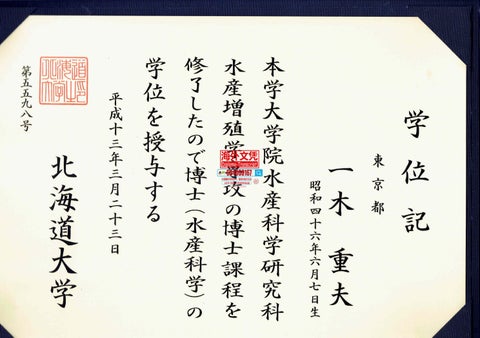 学位記
東京都
一木 重夫
昭和四十六年六月七日生
本学大学院水産科学研究科
水産増殖学専攻の博士課程を
修了したので博士(水産科学)の
学位を授与する
平成十三年三月二十三日
北海道大学
第五五九八号
海外文凭